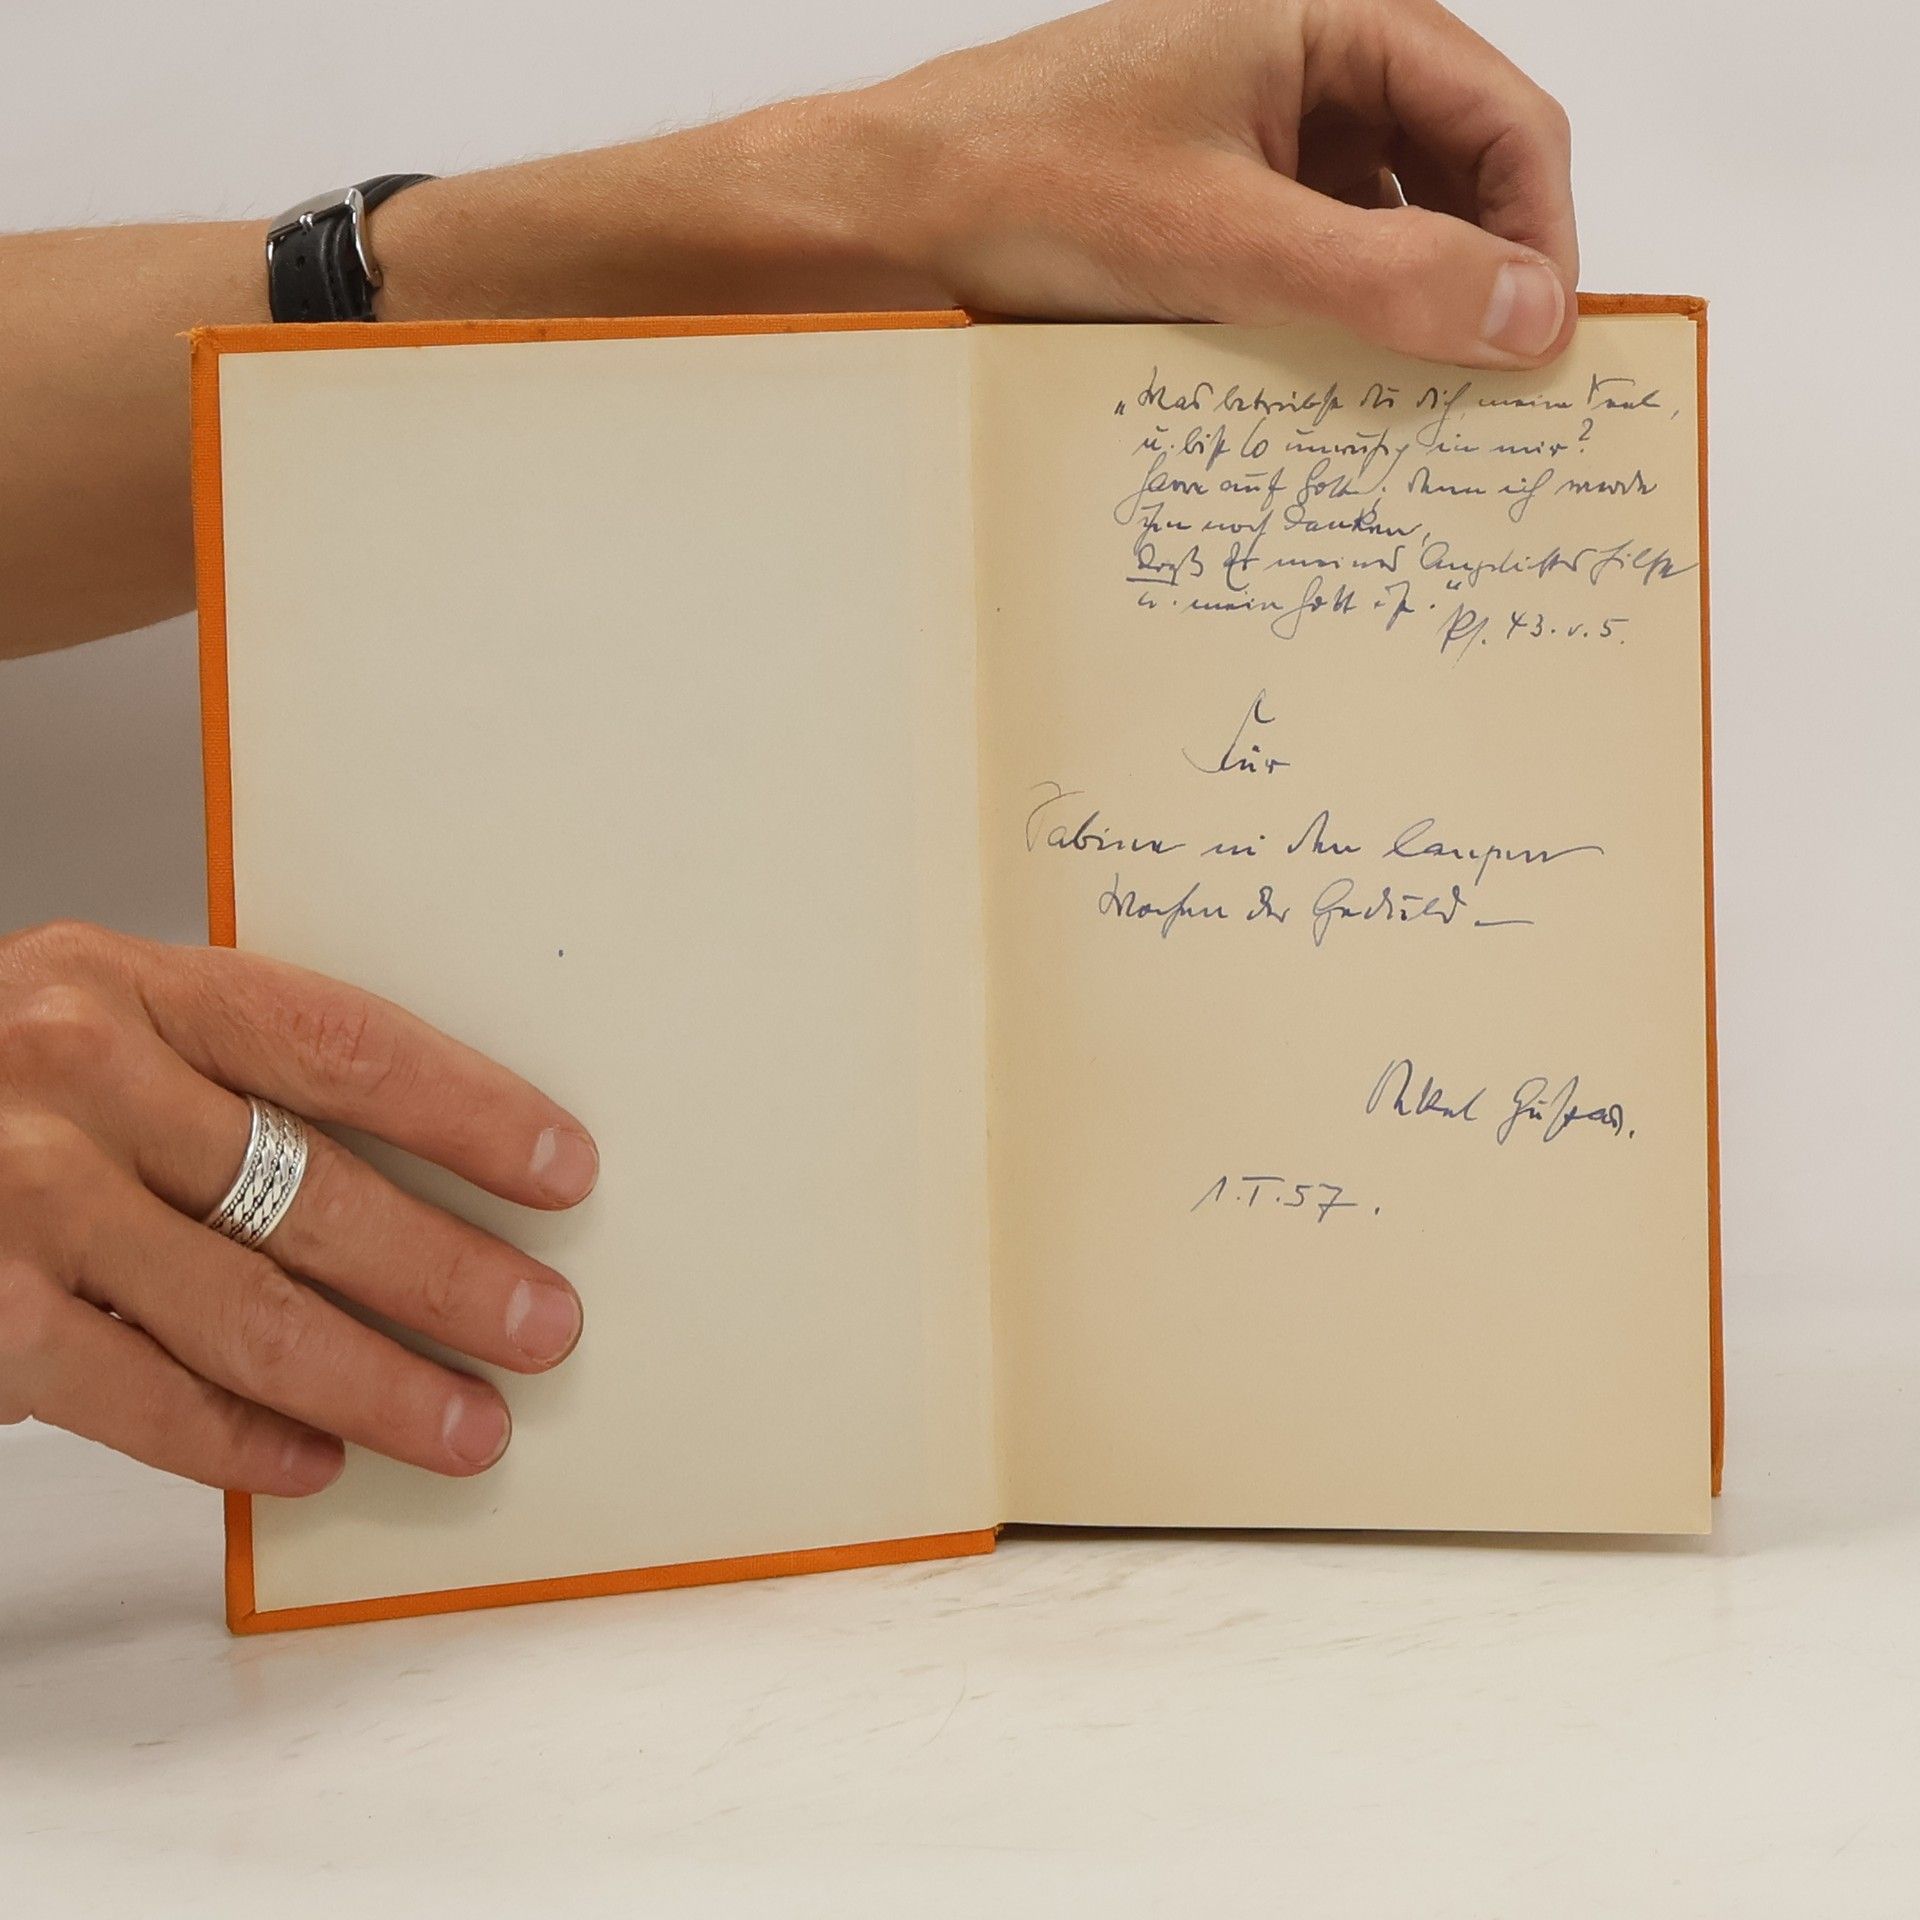 „Was betrübst du dich, meine Seele,
u. bist so unruhig in mir?
Harre auf Gott; denn ich werde
ihm noch danken,
daß Er meines Angesichtes Hilfe
u. mein Gott ist.“
Ps. 43. v. 5.
Für
Sabine in den langen
Wochen der Geduld —
Onkel Gustav.
1.I.57.